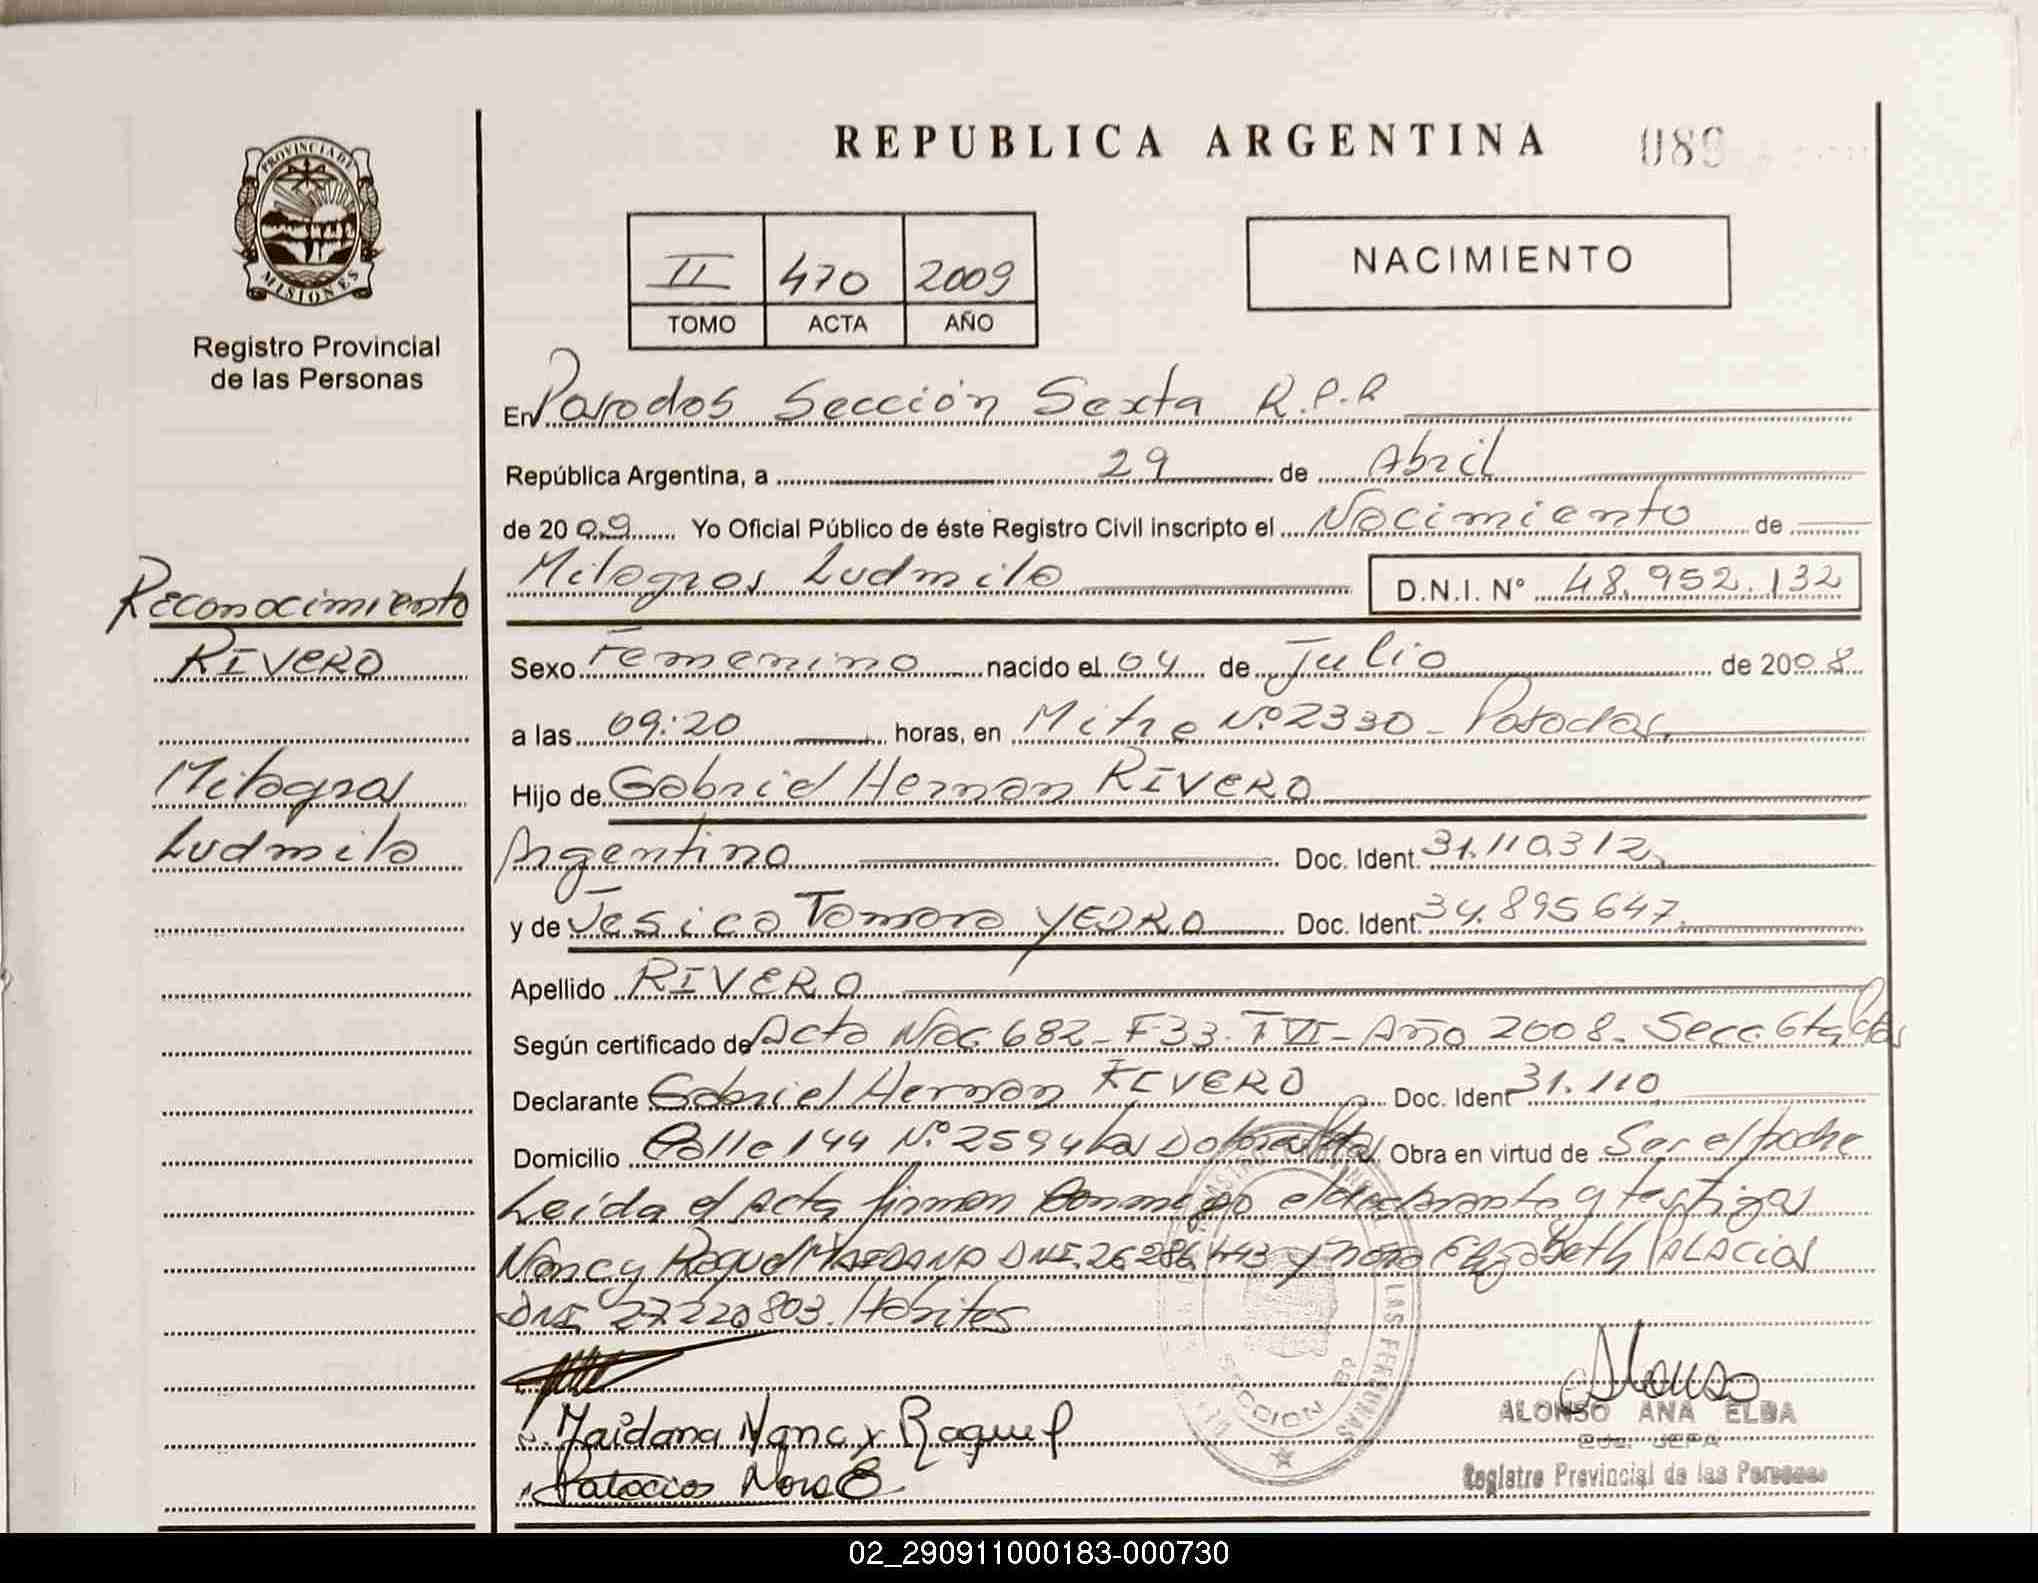 REPUBLICA ARGENTINA 089
PROVINCIA DE
MISIONES
Registro Provincial
de las Personas
II 470 2009
TOMO ACTA AÑO
NACIMIENTO
En Posadas Sección Sexta R.P.P
República Argentina, a 29 de Abril
de 2009 Yo Oficial Público de éste Registro Civil inscripto el Nacimiento de
Milagros Ludmila D.N.I. Nº 48.952.132
Reconocimiento
RIVERO
Milagros
Ludmila
Sexo Femenino nacido el 04 de Julio de 2008
a las 09:20 horas, en Mitre Nº 2330 - Posadas
Hijo de Gabriel Hernan RIVERO
Argentino Doc. Ident. 31.110.312
y de Jesica Tamara YEDRO Doc. Ident. 34.895647
Apellido RIVERO
Según certificado de Acta Nac. 682 - F33. TVI - Año 2008. Secc. 6ta Pdas
Declarante Gabriel Hernan RIVERO Doc. Ident 31.110
Domicilio Calle 144 Nº 2594 Las Obra en virtud de Ser el padre
Leída el Acta firman conmigo el declarante y testigos
Nancy Raquel MAIDANA DNI. 26.286.443 y Nora Elizabeth PALACIOS
DNI 27220803. Habiles
Maidana Nancy Raquel
Palacios Nora E
ALONSO ANA ELBA
JEFA
Registro Provincial de las Personas
SECCION
LAS PERSONAS
02_290911000183-000730